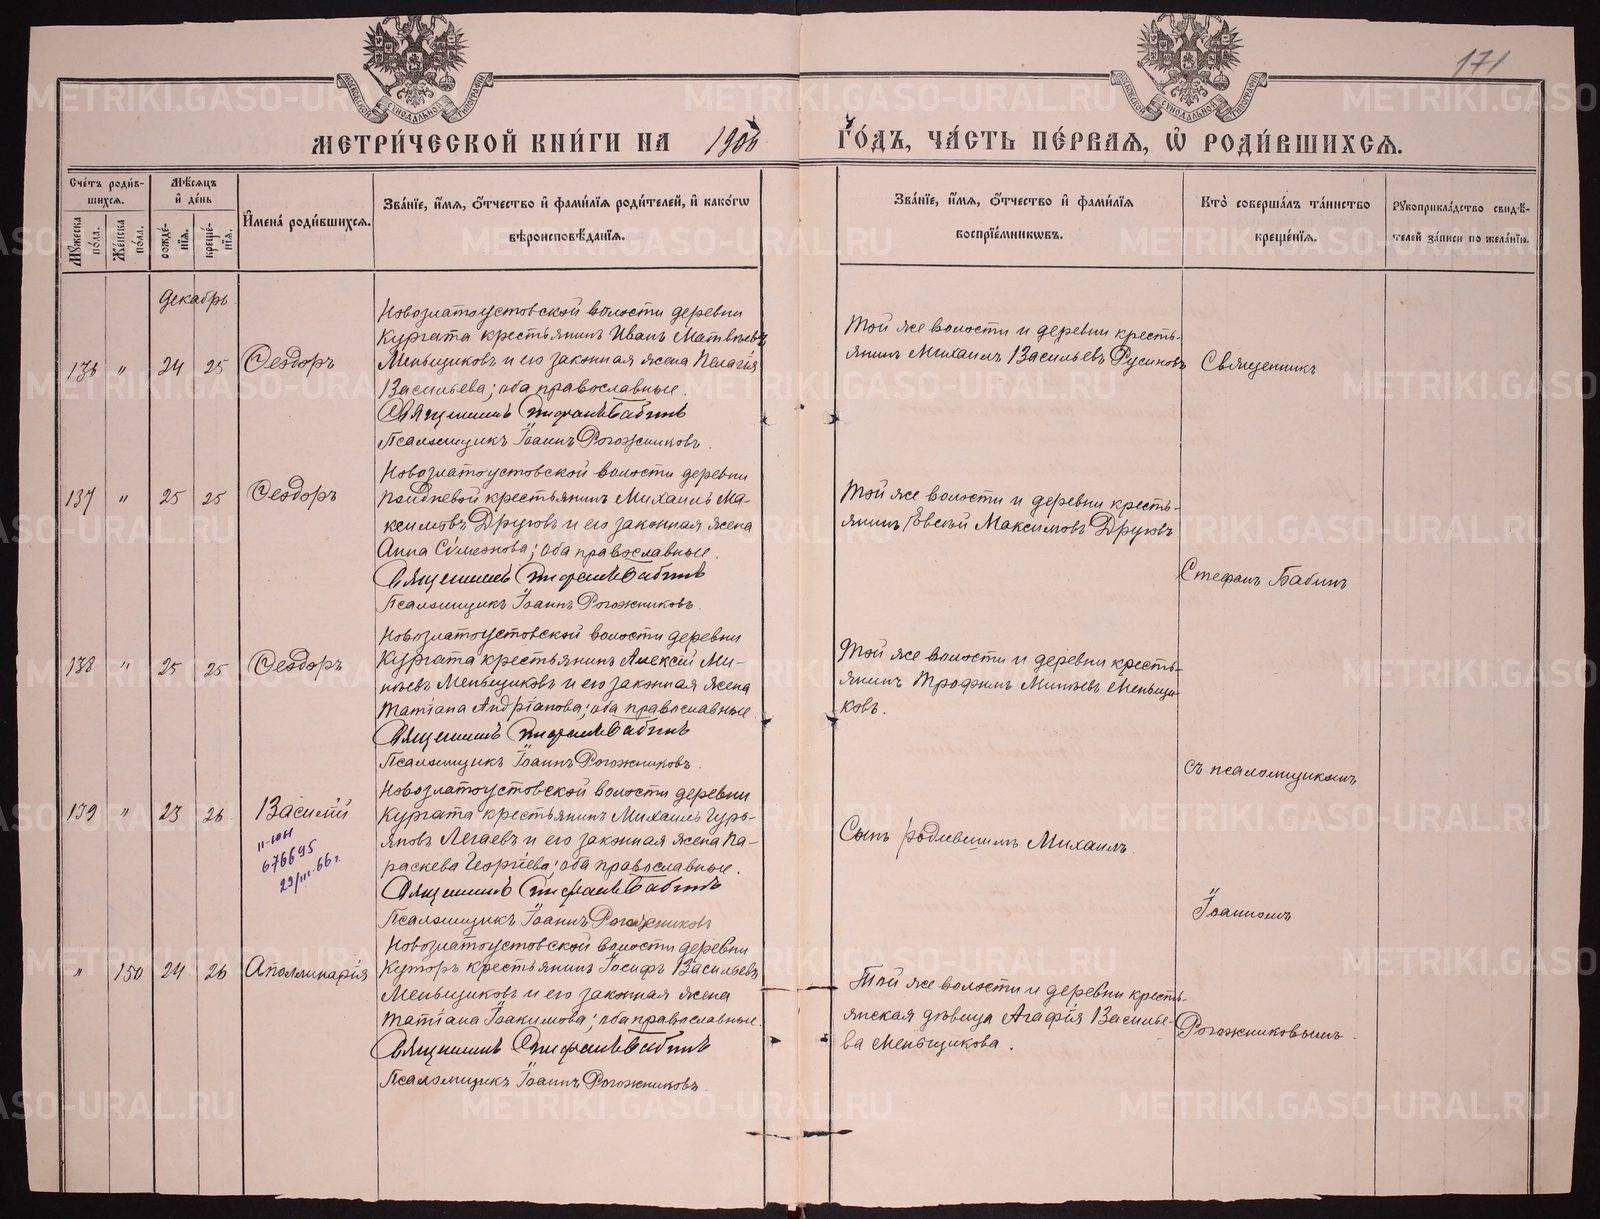 171
МЕТРИ́ЧЕСКОЙ КНИ́ГИ НА 190 ГО́ДЪ, ЧА́СТЬ ПЕ́РВАЯ, Ѡ҆ РОДИ́ВШИХСЯ.
Сче́тъ роди́в-
шихся.
Мꙋ́жеска по́ла.
Же́нска по́ла.
Мѣ́сяцъ и҆ де́нь
рожде́нїя.
креще́нїя.
И҆мена̀ роди́вшихся.
Зва́нїе, и҆́мя, ѻ҆́тчество и҆ фами́лїя роди́телей, и҆ како́гѡ
вѣроисповѣ́данїя.
Зва́нїе, и҆́мя, ѻ҆́тчество и҆ фами́лїя
воспрїе́мниковъ.
Кто̀ соверша́лъ та́инство
креще́нїя.
Рꙋкоприкла́дство свидѣ́-
телей за́писи по жела́нїю.
Декабрь
136 " 24 25 Ѳеодоръ
Новозлатоустовской волости деревни
Кургата крестьянинъ Иванъ Матвѣевъ
Меньщиковъ и его законная жена Пелагія
Васильева; оба православные.
Священникъ Стефанъ Бабинъ
Псаломщикъ Іоаннъ Рогожниковъ.
Той же волости и деревни кресть-
янинъ Михаилъ Васильевъ Русиновъ
Священникъ
137 " 25 25 Ѳеодоръ
Новозлатоустовской волости деревни
крестьянинъ Михаилъ Ма-
ксимовъ Друговъ и его законная жена
Анна Сѷмеонова; оба православные.
Священникъ Стефанъ Бабинъ
Псаломщикъ Іоаннъ Рогожниковъ.
Той же волости и деревни кресть-
янинъ Максимовъ Друговъ
Стефанъ Бабинъ
138 " 25 25 Ѳеодоръ
Новозлатоустовской волости деревни
Кургата крестьянинъ Алексій Ми-
нѣевъ Меньщиковъ и его законная жена
Татіана Андріанова; оба православные
Священникъ Стефанъ Бабинъ
Псаломщикъ Іоаннъ Рогожниковъ.
Той же волости и деревни кресть-
янинъ Трофимъ Минѣевъ Меньщи-
ковъ.
съ псаломщикомъ
139 " 23 26 Василій
II-ЮН
676695
29/III-66 г.
Новозлатоустовской волости деревни
Кургата крестьянинъ Михаилъ Гурь-
яновъ Легаевъ и его законная жена Па-
раскева Георгіева; оба православные.
Священникъ Стефанъ Бабинъ
Псаломщикъ Іоаннъ Рогожниковъ
Сынъ родившимъ Михаилъ.
Іоанномъ
" 150 24 26 Аполлинарія
Новозлатоустовской волости деревни
Куторъ крестьянинъ Іосифъ Васильевъ
Меньщиковъ и его законная жена
Татіана Іоакимова; оба православные.
Священникъ Стефанъ Бабинъ
Псаломщикъ Іоаннъ Рогожниковъ.
Той же волости и деревни кресть-
янская дѣвица Агафія Василье-
ва Меньщикова.
Рогожниковымъ.
METRIKI.GASO-URAL.RU